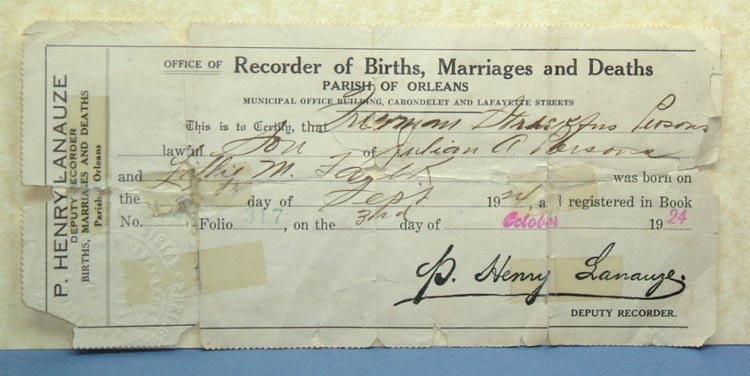 P. HENRY LANAUZE
DEPUTY RECORDER
BIRTHS, MARRIAGES AND DEATHS
Parish Orleans
OFFICE OF Recorder of Births, Marriages and Deaths
PARISH OF ORLEANS
MUNICIPAL OFFICE BUILDING, CARONDELET AND LAFAYETTE STREETS
This is to Certify, that Freeman Parsons
lawful Son of Julian A Parsons
and M. was born on
the day of Sept 1924, a d registered in Book
No. Folio 317, on the 3rd day of October 1924
P. Henry Lanauze.
DEPUTY RECORDER.